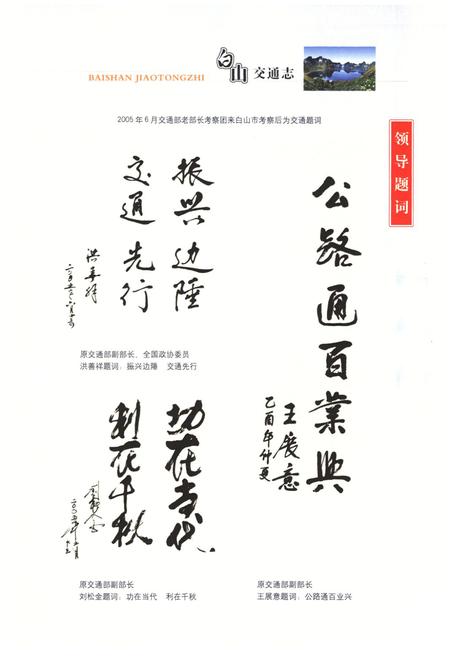 白山 交通志
BAISHAN JIAOTONGZHI
2005年6月交通部老部长考察团来白山市考察后为交通题词
领导题词
振兴边陲
交通先行
洪善祥
公路通百業興
王展意
乙酉年仲夏
原交通部副部长、全国政协委员
洪善祥题词：振兴边陲 交通先行
功在当代
利在千秋
刘松金
原交通部副部长
刘松金题词：功在当代 利在千秋
原交通部副部长
王展意题词：公路通百业兴